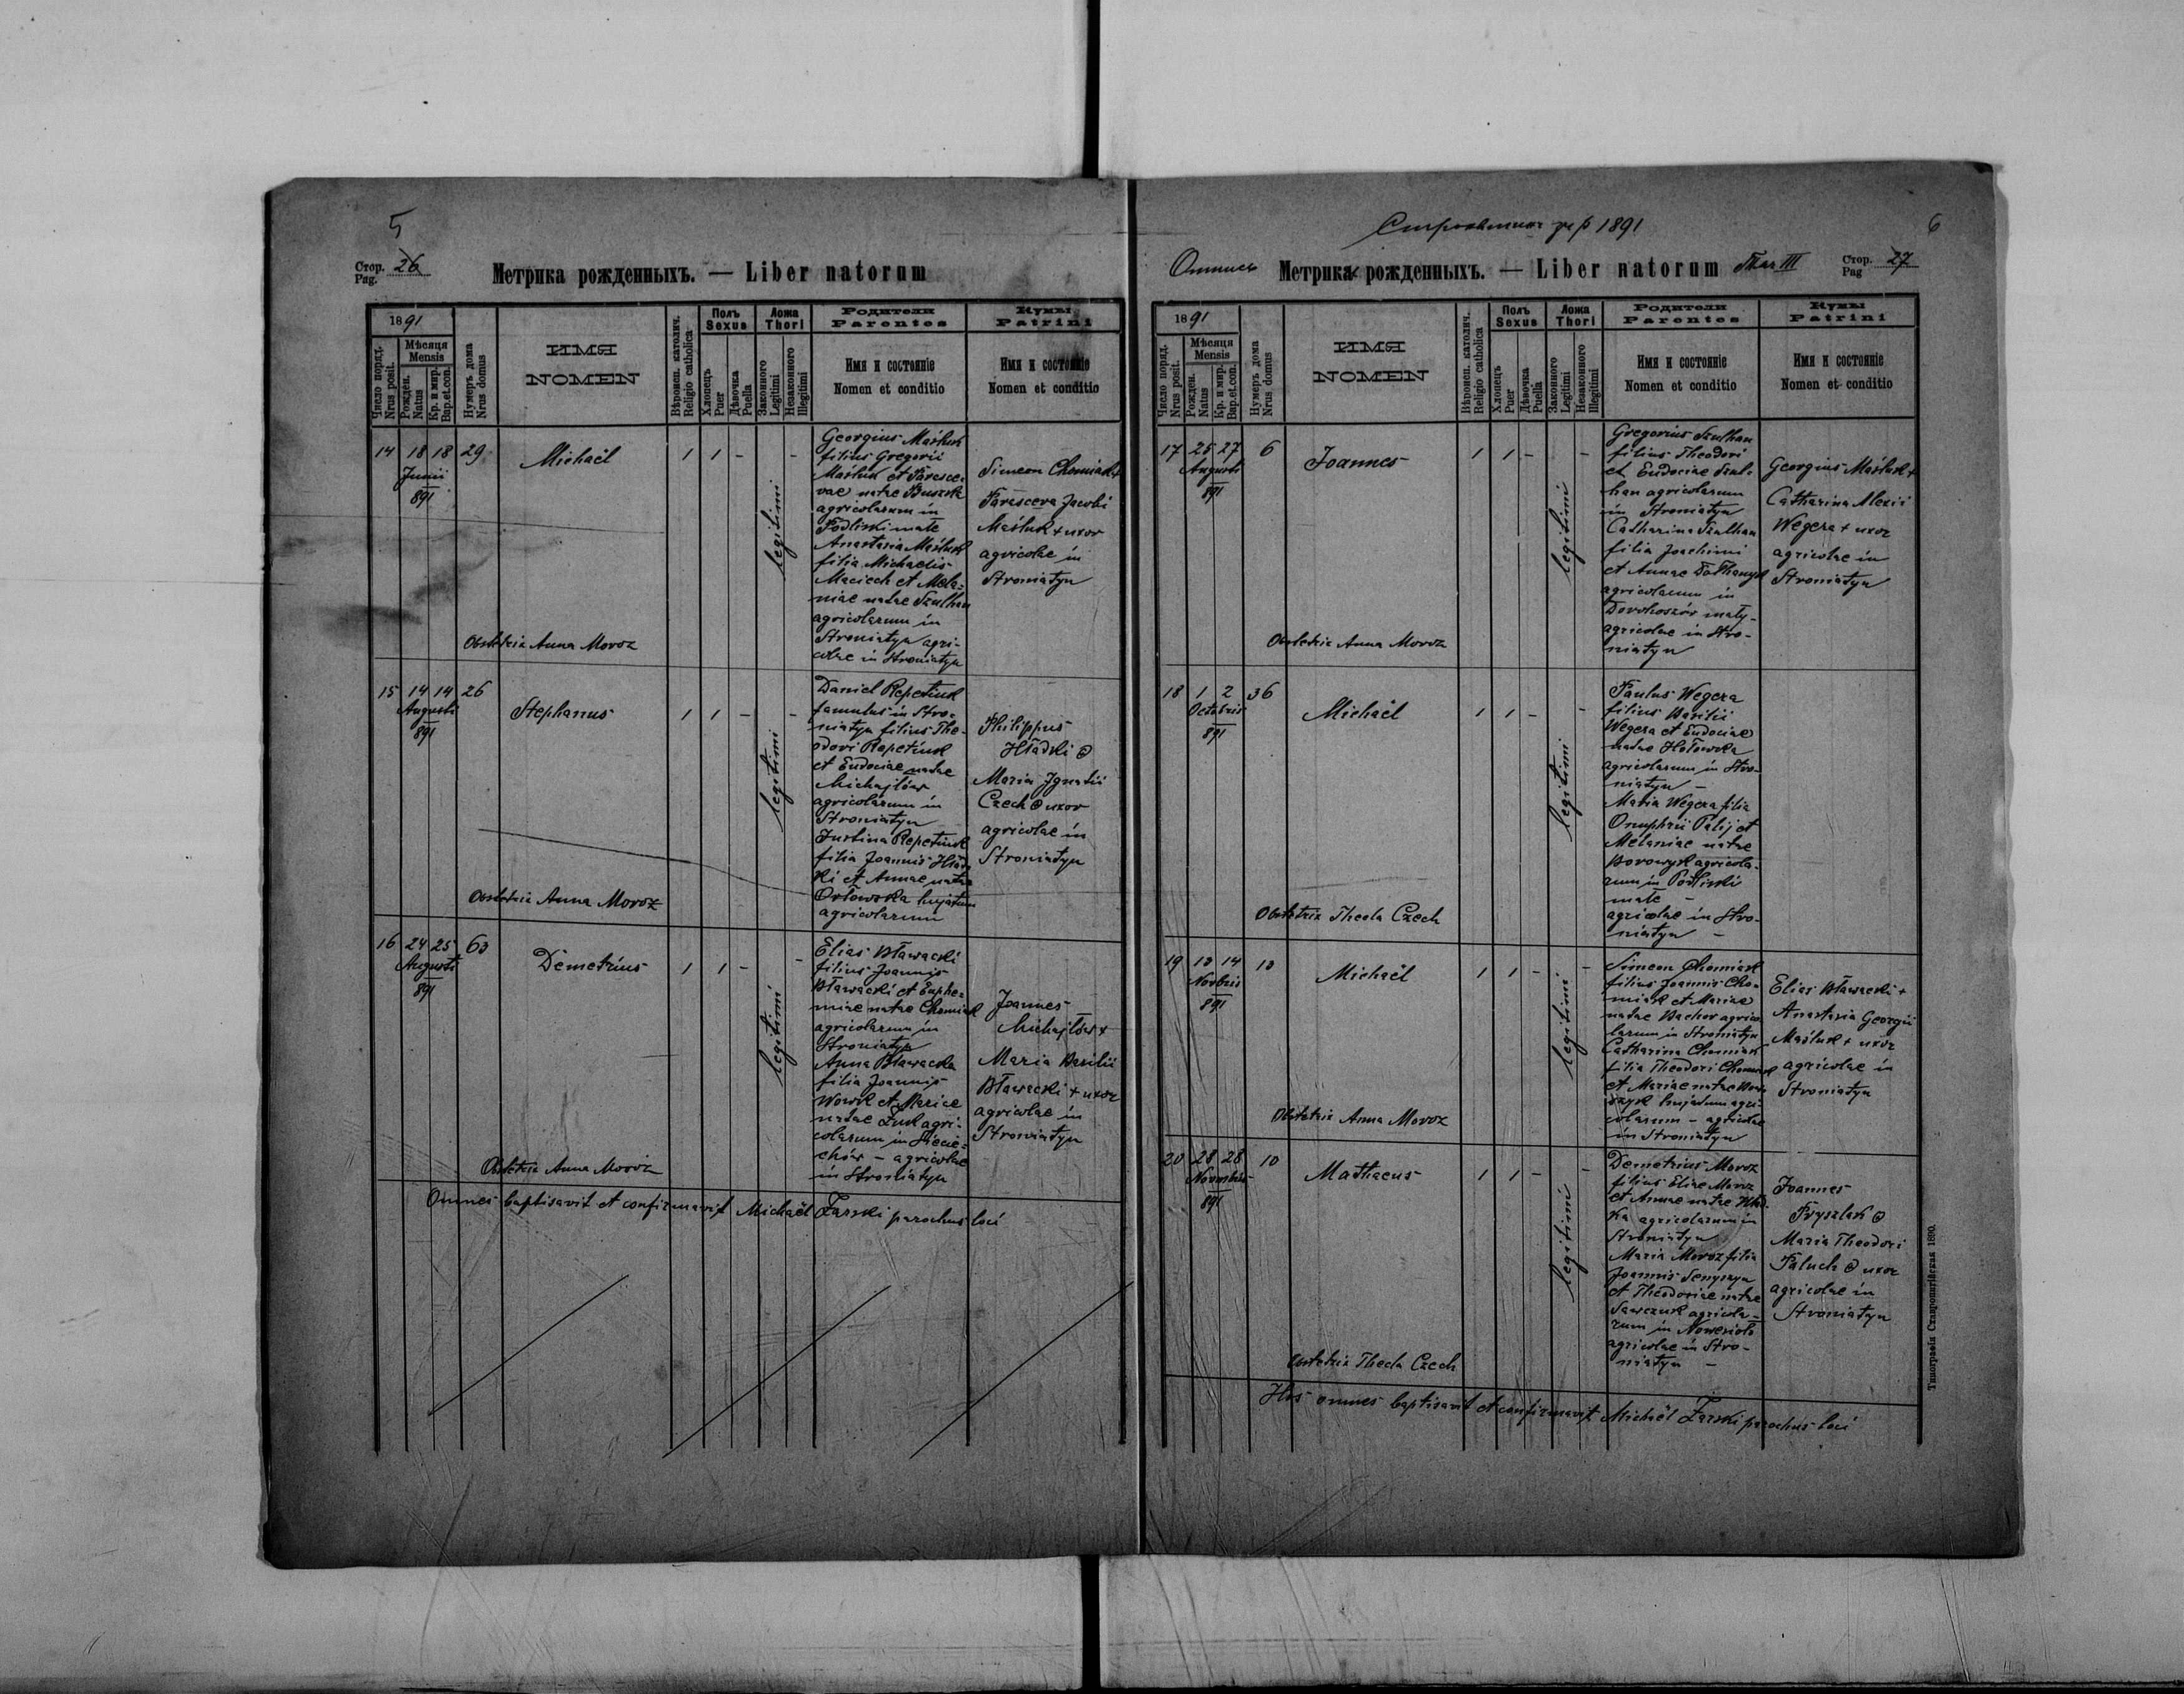 5
Стор. 26
Pag.
Метрика рожденныхъ. — Liber natorum
1891
Число поряд.
Nrus posit.
Мѣсяця
Mensis
Рожден.
Natus
Кр. и мир.
Bap.et.con.
Нумеръ дома
Nrus domus
ИМЯ
NOMEN
Вѣроисп. католич.
Religio catholica
Полъ
Sexus
Хлопець
Puer
Дѣвочка
Puella
Ложа
Thori
Законного
Legitimi
Незаконного
Illegitimi
Родители
Parentes
Имя и состояніе
Nomen et conditio
Кумы
Patrini
Имя и состояніе
Nomen et conditio
14 18 18 29 Michaël 1 1 - legitimi -
Junii
891
Georgius Maśluk
filius Gregorii
Maśluk et Paresce-
vae natae Buszk
agricolarum in
Podliski małe
Anastasia Maśluk
filia Michaelis
Maciech et Mela-
niae natae Szulhan
agricolarum in
Stroniatyn agri-
colae in Stroniatyn
Simeon Chomiak +
Parascera Jacobi
Maśluk + uxor
agricolae in
Stroniatyn
Obstetrix Anna Moroz
15 14 14 26 Stephanus 1 1 - legitimi -
Augusti
891
Daniel Repetiuk
famulus in Stro-
niatyn filius The-
odori Repetiuk
et Eudociae natae
Michajlów
agricolarum in
Stroniatyn
Justina Repetiuk
filia Joannis Hład-
ki et Annae natae
Orłowska hujatum
agricolarum
Philippus
Hładki @
Maria Ignatii
Czech @ uxor
agricolae in
Stroniatyn
Obstetrix Anna Moroz
16 24 25 63 Demetrius 1 1 - legitimi -
Augusti
891
Elias Bławacki
filius Joannis
Bławacki et Euphe-
miae natae Chomiak
agricolarum in
Stroniatyn
Anna Bławacka
filia Joannis
Wowk et Mariae
natae Żuk agri-
colarum in Siecie-
chów - agricolae
in Stroniatyn
Joannes
Michajlów +
Maria Basilii
Bławacki + uxor
agricolae in
Stroniatyn
Obstetrix Anna Moroz
Omnes baptisavit et confirmavit Michaël Zarski parochus loci
6
1891
Стор. 27
Pag
Метрика рожденныхъ. — Liber natorum III
1891
Число поряд.
Nrus posit.
Мѣсяця
Mensis
Рожден.
Natus
Кр. и мир.
Bap.et.con.
Нумеръ дома
Nrus domus
ИМЯ
NOMEN
Вѣроисп. католич.
Religio catholica
Полъ
Sexus
Хлопець
Puer
Дѣвочка
Puella
Ложа
Thori
Законного
Legitimi
Незаконного
Illegitimi
Родители
Parentes
Имя и состояніе
Nomen et conditio
Кумы
Patrini
Имя и состояніе
Nomen et conditio
17 25 27 6 Joannes 1 1 - legitimi -
Augusti
891
Gregorius Szulhan
filius Theodori
et Eudociae Szul-
han agricolarum
in Stroniatyn
Catharina Szulhan
filia Joachimi
et Annae
agricolarum in
Dorohoszów mały-
agricolae in Stro-
niatyn
Georgius Maśluk +
Catharina Alexii
Wegera + uxor
agricolae in
Stroniatyn
Obstetrix Anna Moroz
18 1 2 36 Michaël 1 1 - legitimi
Octobris
891
Paulus Wegera
filius Basilii
Wegera et Eudociae
natae Hołowka
agricolarum in Stro-
niatyn -
Maria Wegera filia
Onuphrii Palij et
Melaniae natae
Borowyk agricola-
rum in Podliski
małe -
agricolae in Stro-
niatyn -
Obstetrix Thecla Czech
19 13 14 13 Michaël 1 1 - legitimi -
Novbris
891
Simeon Chomiak
filius Joannis Cho-
miak et Mariae
natae Bachor agrico-
larum in Stroniatyn
Catharina Chomiak
filia Theodori Chomiak
et Mariae natae
hujatum agri-
colarum - agricolae
in Stroniatyn
Elias Bławacki +
Anastasia Georgii
Maśluk + uxor
agricolae in
Stroniatyn
Obstetrix Anna Moroz
20 28 28 10 Mathaeus 1 1 - legitimi -
Novembris
891
Demetrius Moroz
filius Eliae Moroz
et Annae natae Hład-
ka agricolarum in
Stroniatyn
Maria Moroz filia
Joannis Senyszyn
et Theodosiae natae
Sawczuk agricola-
rum in Nowesioło
agricolae in Stro-
niatyn -
Joannes
Fryszlak @
Maria Theodori
Paluch @ uxor
agricolae in
Stroniatyn
Obstetrix Thecla Czech
Hos omnes baptisavit et confirmavit Michaël Zarski parochus loci
Типографія Ставропигійская 1890.